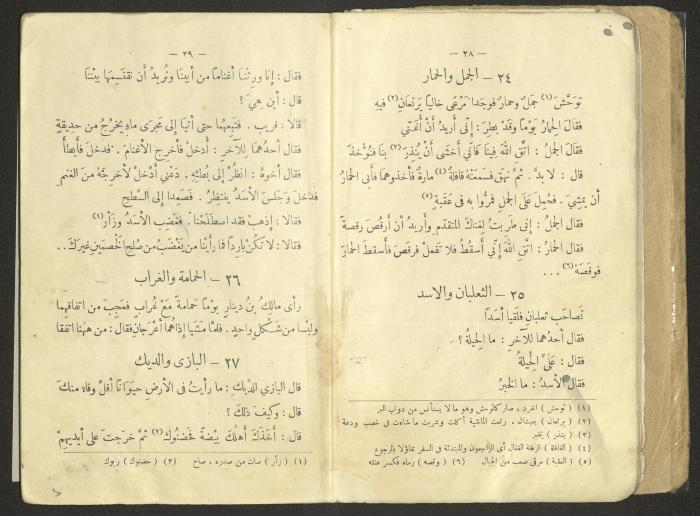 — ٢٨ —
٢٤ – الجمل والحمار
توَحَّشَ (١) جَملٌ وحمارٌ فوجَدا مَرْعًى خاليًا يَرتَعانِ (٢) فيهِ
فقالَ الحِمارُ يَوْمًا وقَدْ بطِرَ : إنّي أُريدُ أنْ أُغَنّي
فقالَ الجمَلُ : اتَّقِ اللهَ فِينا فَإنّي أخشى أنْ يُنْذَرَ (٣) بنا فنُؤْخَذَ
قال : لا بدَّ . ثمَّ نهقَ فسمَعَتْهُ قافلةٌ (٤) مارةٌ فأخذوهما فأَبى الحمارُ
أن يمشِيَ . فحُمِلَ عَلَى الجملِ فمرُّوا به في عَقَبةٍ (٥)
فقال الجمَلُ : إنى طَرِبتُ لِغِنائِكَ المتقدِّمِ وأُريدُ أن أَرقُصَ رقصةً
فقال الحمارُ : اتَّقِ اللهَ إنّي أَسقُطُ فلا تَفعلْ فرقصَ فأسقطَ الحمارَ
فوقصَهُ (٦) ...
٢٥ – الثعلبان والاسد
تَصاحَبَ ثعلبانِ فلَقيا أسَدًا
فقال أحدُهما للآخَرِ : ما الحِيلةُ ؟
فقال : عَلَيَّ الحِيلةُ
فقال الأسَدُ : ما الخبرُ
(١) ( توحش ) انفرد ، صار كالوحش وهو ما لا يستأنس من دواب البر
(٢) ( يرتعان ) يعيشان ، رتعت الماشية أكلت وشربت ما شاءت في خصب ودعة
(٣) ( ينذر ) يخبر
(٤) ( القافلة ) الرفقة القفال أي الراجعون والمبتدئة في السفر تفاؤلا بالرجوع
(٥) ( العقبة ) مرقى صعب من الجبال (٦) ( وقصه ) رماه فكسر عنقه
— ٢٩ —
فقال : إنا ورِثْنا أغنامًا من أبينا ونُريدُ أن نقتَسِمَها بيْننَا
قال : أين هِيَ ؟
قالا : قريب . فتَبِعَهُما حتى أتيا إلى مَجرَى ماءٍ يخرُجُ من حديقةٍ
فقال أحدُهما للآخَرِ : أَدخُلُ فأُخرِجُ الأغنامَ . فدخلَ فأَبطأَ
فقال أخوهُ : انظُرْ إلى بُطئِهِ . دَعْني أدْخُلْ لأُخرِجَهُ منَ الغنمِ
فدَخَلَ وجَلسَ الأسَدُ ينتظِرُ . فصَعِدا إلى السَّطحِ
فقالا : إذهبْ فقد اصطَلَحْنا . فغَضِبَ الأسَدُ وزَأرَ (١)
فقالا : لا تكُنْ بارِدًا فما رأَيْنا من يَغْضَبُ من صُلحِ الخَصْمَينِ غيرَكَ ..
٢٦ – الحمامة والغراب
رأى مالِكُ بنُ دينارٍ يومًا حَمامةً مَعَ غُرابٍ فعجِبَ من اتفاقِهِما
وليْسا من شَكْلٍ واحدٍ . فلمَّا مَشَيا إذا هُما أعرَجانِ فقال : من ههُنا اتفقا
٢٧ – البازى والديك
قال البازي للدِّيكِ : ما رأيتُ في الأرضِ حيَوَانًا أقلَّ وفاءً منكَ
قال : وكيفَ ذلكَ ؟
قال : أَخذَكَ أهلُكَ بَيْضةً فحَضَنُوكَ (٢) ثمَّ خرَجتَ عَلَى أيديهِمْ
(١) ( زأر ) صات من صدره ، صاح (٢) ( حضنوك ) ربوك